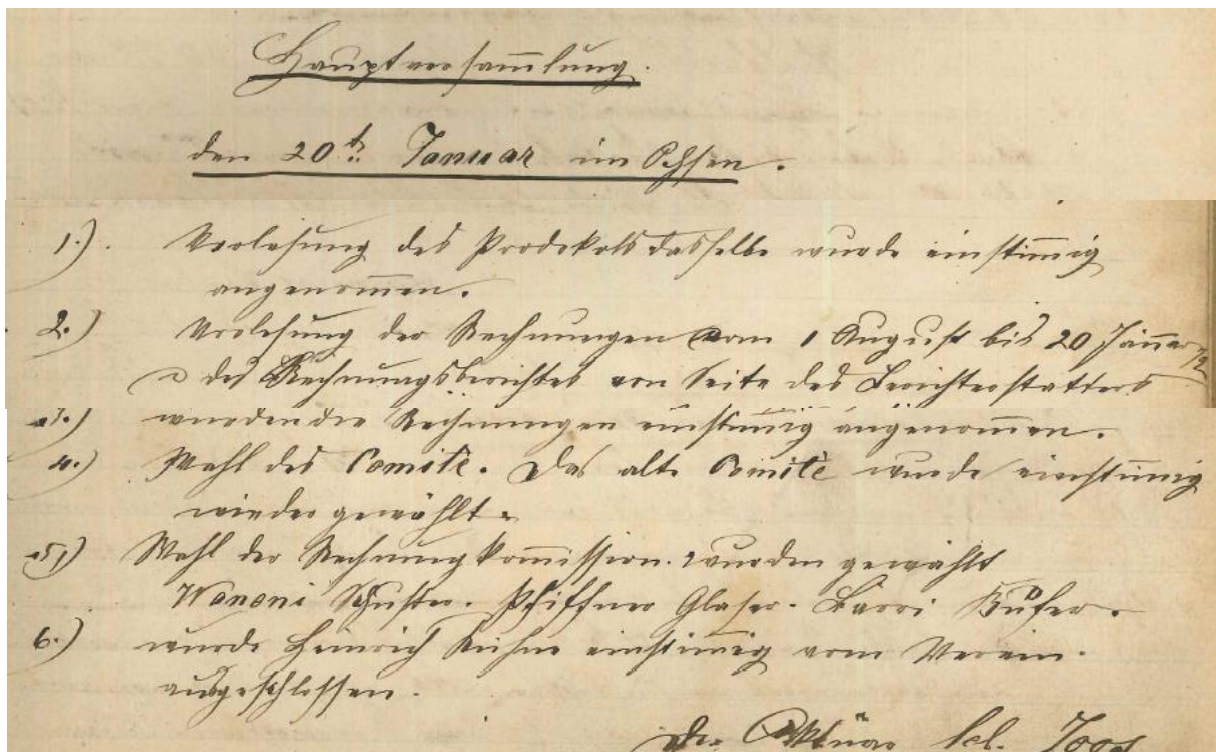 Hauptversammlung.
den 20t. Januar im Ochsen.
1.) Vorlesung des Prodokols dasselbe wurde einstimmig
angenommen.
2.) Vorlesung der Rechnungen vom 1 August bis 20 Jänner
des Rechnungsberichtes von Seite des Berichterstatters
3.) wurden die Rechnungen einstimmig angenommen.
4.) Wahl des Comitè. Das alte Comitè wurde einstimmig
wieder gewählt.
5.) Wahl der Rechnungkommission. wurden gewählt
Wanoni Schuster. Pfiffner Glaser. Barri Küfer.
6.) wurde Heinrich Kühne einstimmig vom Verein.
ausgeschlossen.
Der Aktuar